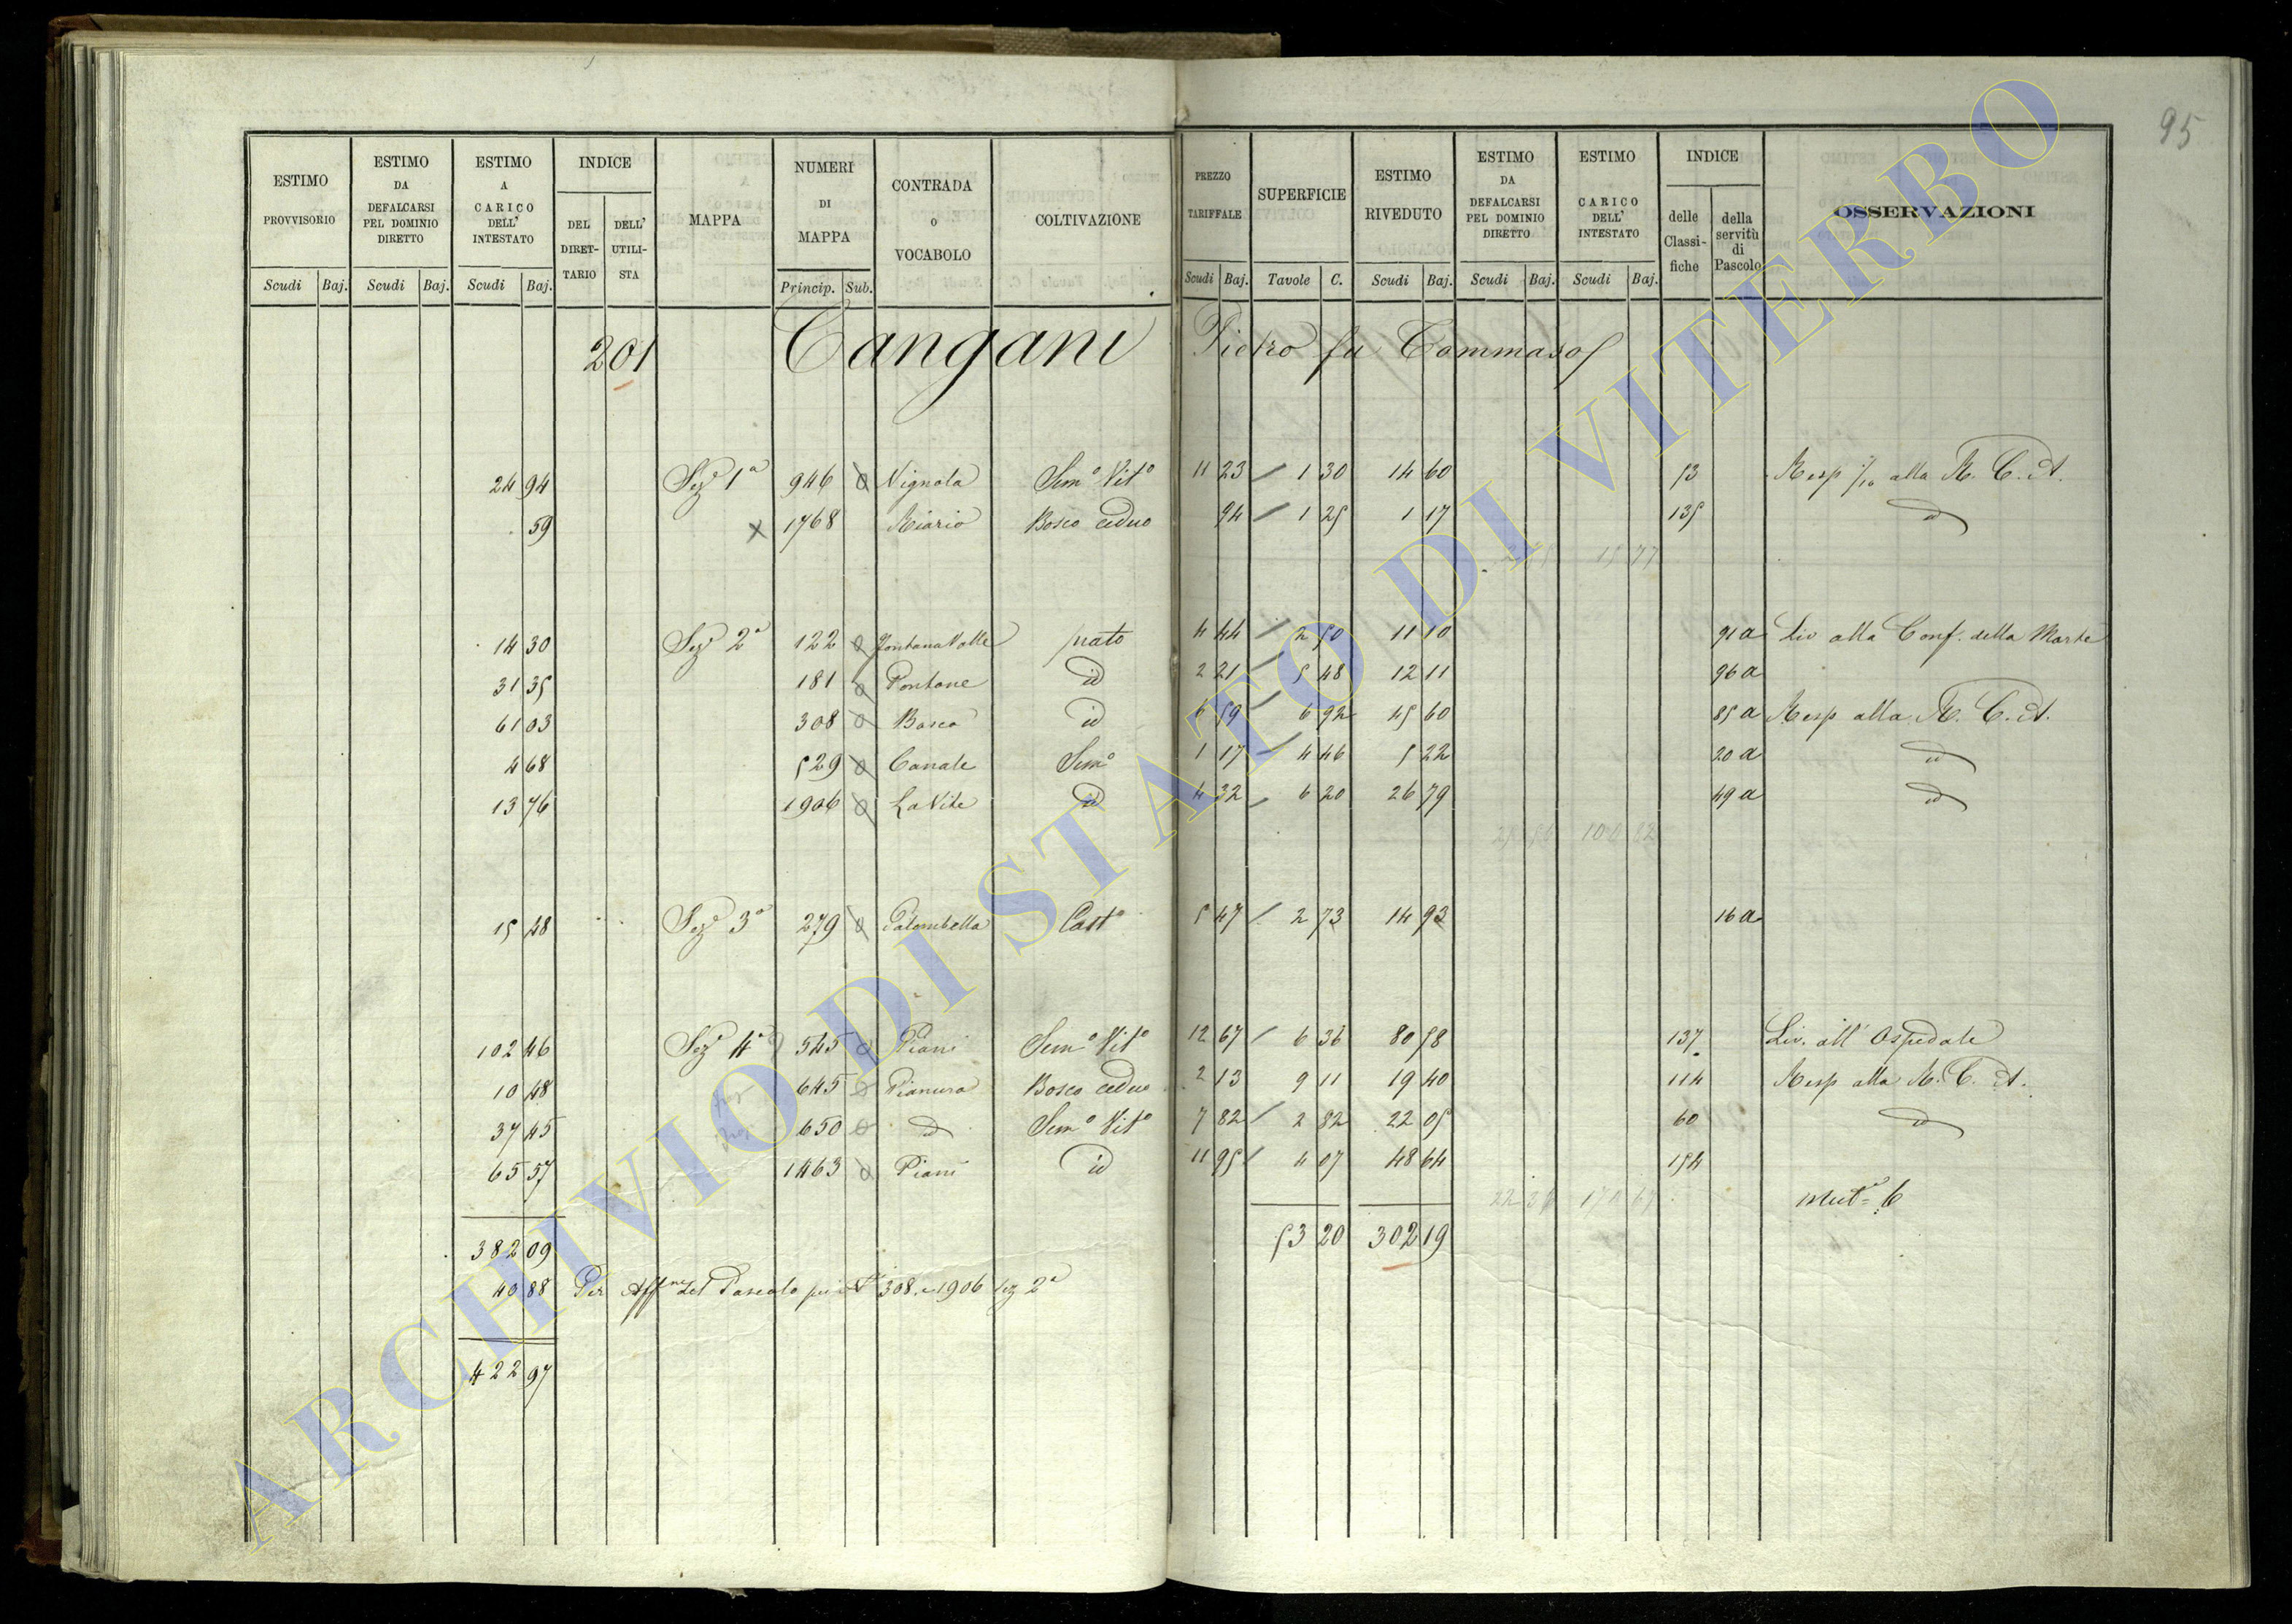 95
ESTIMO PROVVISORIO | ESTIMO DA DEFALCARSI PEL DOMINIO DIRETTO | ESTIMO A CARICO DELL' INTESTATO | INDICE DEL DIRETTARIO | DELL' UTILISTA | MAPPA | NUMERI DI MAPPA | CONTRADA o VOCABOLO | COLTIVAZIONE | PREZZO TARIFFALE | SUPERFICIE | ESTIMO RIVEDUTO | ESTIMO DA DEFALCARSI PEL DOMINIO DIRETTO | ESTIMO A CARICO DELL' INTESTATO | INDICE delle Classifiche | della servitù di Pascolo | OSSERVAZIONI
Scudi Baj. | Scudi Baj. | Scudi Baj. | Princip. Sub. | Scudi Baj. | Tavole C. | Scudi Baj. | Scudi Baj. | Scudi Baj.
201 Tangani Pietro fu Tommaso
24 94 Sez 1a 946 Vignola Sem.o Vit.o 11 23 1 30 14 60 53 Resp 1/10 alla R. C. A.
59 x 1768 Riario Bosco ceduo 94 1 25 1 17 135 id
15 77
14 30 Sez 2a 122 Fontana Valle prato 4 44 2 50 11 10 91 a Liv alla Conf. della Morte
31 35 181 Pontone id 2 21 5 48 12 11 96 a
61 03 308 Bosco id 6 59 6 92 45 60 85 a Resp alla R. C. A.
4 68 529 Canale Sem.o 1 17 4 46 5 22 20 a id
13 76 1906 La Vite id 4 32 6 20 26 79 49 a id
15 48 Sez 3a 279 Palombella Cast.o 5 47 2 73 14 93 16 a
102 46 Sez 4a 545 Piani Sem.o Vit.o 12 67 6 36 80 58 137 Liv. all' Ospedale
10 48 645 Pianura Bosco ceduo 2 13 9 11 19 40 114 Resp alla R. C. A.
37 45 650 id Sem.o Vit.o 7 82 2 82 22 05 60 id
65 57 1463 Piani id 11 95 4 07 48 64 154
Mut.a 6
382 09 53 20 302 19
40 88 Per Aff.ne del Pascolo pei N.i 308. e 1906 sez 2a
422 97
ARCHIVIO DI STATO DI VITERBO